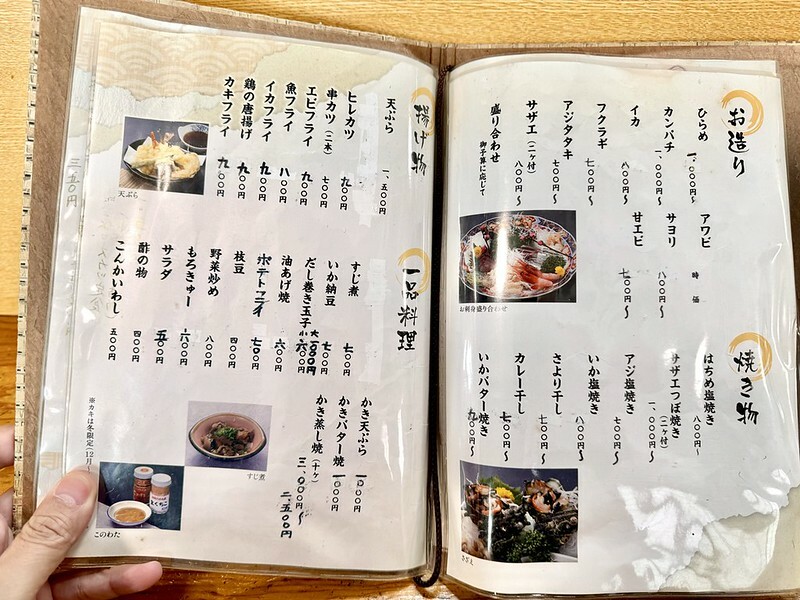 お造り
ひらめ 一、〇〇〇円〜
カンパチ 一、〇〇〇円〜
イカ 八〇〇円〜
フクラギ 七〇〇円〜
アジタタキ 七〇〇円〜
サザエ(二ヶ付) 八〇〇円〜
盛り合わせ 御予算に応じて
アワビ 時価
サヨリ 八〇〇円〜
甘エビ 七〇〇円〜
お刺身盛り合わせ
焼き物
はちめ塩焼き 八〇〇円〜
サザエつぼ焼き(二ヶ付) 一、〇〇〇円〜
アジ塩焼き 七〇〇円〜
いか塩焼き 八〇〇円〜
さより干し 七〇〇円〜
カレー干し 七〇〇円〜
いかバター焼き 九〇〇円〜
さざえ
揚げ物
天ぷら 一、五〇〇円
ヒレカツ 九〇〇円
串カツ(二本) 七〇〇円
エビフライ 九〇〇円
魚フライ 八〇〇円
イカフライ 九〇〇円
鶏の唐揚げ 九〇〇円
カキフライ 九〇〇円
天ぷら
一品料理
すじ煮 七〇〇円
いか納豆 七〇〇円
だし巻き玉子 大 一〇〇〇円 小 六〇〇円
油あげ焼 六〇〇円
ポテトフライ 七〇〇円
枝豆 四〇〇円
野菜炒め 八〇〇円
もろきゅー 六〇〇円
サラダ 五〇〇円
酢の物 四〇〇円
こんかいわし 五〇〇円
かき天ぷら 一〇〇〇円
かきバター焼 一〇〇〇円
かき蒸し焼(十ヶ) 三、〇〇〇円〜
二、五〇〇円
※カキは冬限定(12月〜
すじ煮
このわた
三五〇円